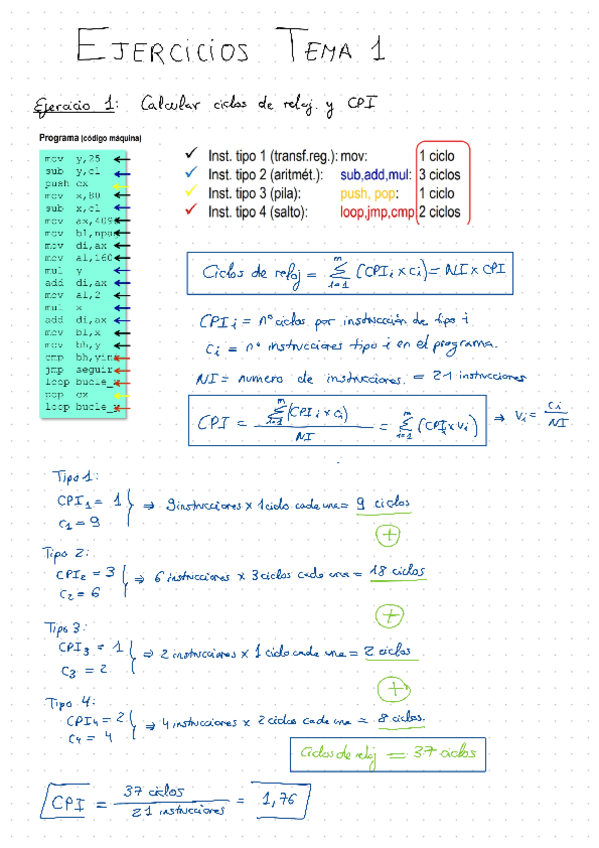 EJERCICIOS TEMA 1
Ejercicio 1: Calcular ciclos de reloj y CPI
Programa (código máquina)
mov y,25
sub y,cl
push cx
mov x,80
sub x,cl
mov ax,409
mov bl,npa
mov di,ax
mov al,160
mul y
add di,ax
mov al,2
mul x
add di,ax
mov bl,x
mov bh,y
cmp bh,yin
jmp seguir
loop bucle_
pop cx
loop bucle_
✓ Inst. tipo 1 (transf.reg.): mov: 1 ciclo
✓ Inst. tipo 2 (aritmét.): sub,add,mul: 3 ciclos
✓ Inst. tipo 3 (pila): push, pop: 1 ciclo
✓ Inst. tipo 4 (salto): loop,jmp,cmp 2 ciclos
Ciclos de reloj = Σ^m_{i=1} (CPIi × Ci) = NI × CPI
CPIi = nº ciclos por instrucción de tipo i
Ci = nº instrucciones tipo i en el programa.
NI = numero de instrucciones. = 21 instrucciones
CPI = Σ^m_{i=1} (CPIi × Ci) / NI = Σ^m_{i=1} (CPIi × Vi) ⇒ Vi = Ci / NI
Tipo 1:
CPI1 = 1
C1 = 9
⇒ 9 instrucciones × 1 ciclo cada una = 9 ciclos
+
Tipo 2:
CPI2 = 3
C2 = 6
⇒ 6 instrucciones × 3 ciclos cada una = 18 ciclos
+
Tipo 3:
CPI3 = 1
C3 = 2
⇒ 2 instrucciones × 1 ciclo cada una = 2 ciclos
+
Tipo 4:
CPI4 = 2
C4 = 4
⇒ 4 instrucciones × 2 ciclos cada una = 8 ciclos.
Ciclos de reloj = 37 ciclos
CPI = 37 ciclos / 21 instrucciones = 1,76